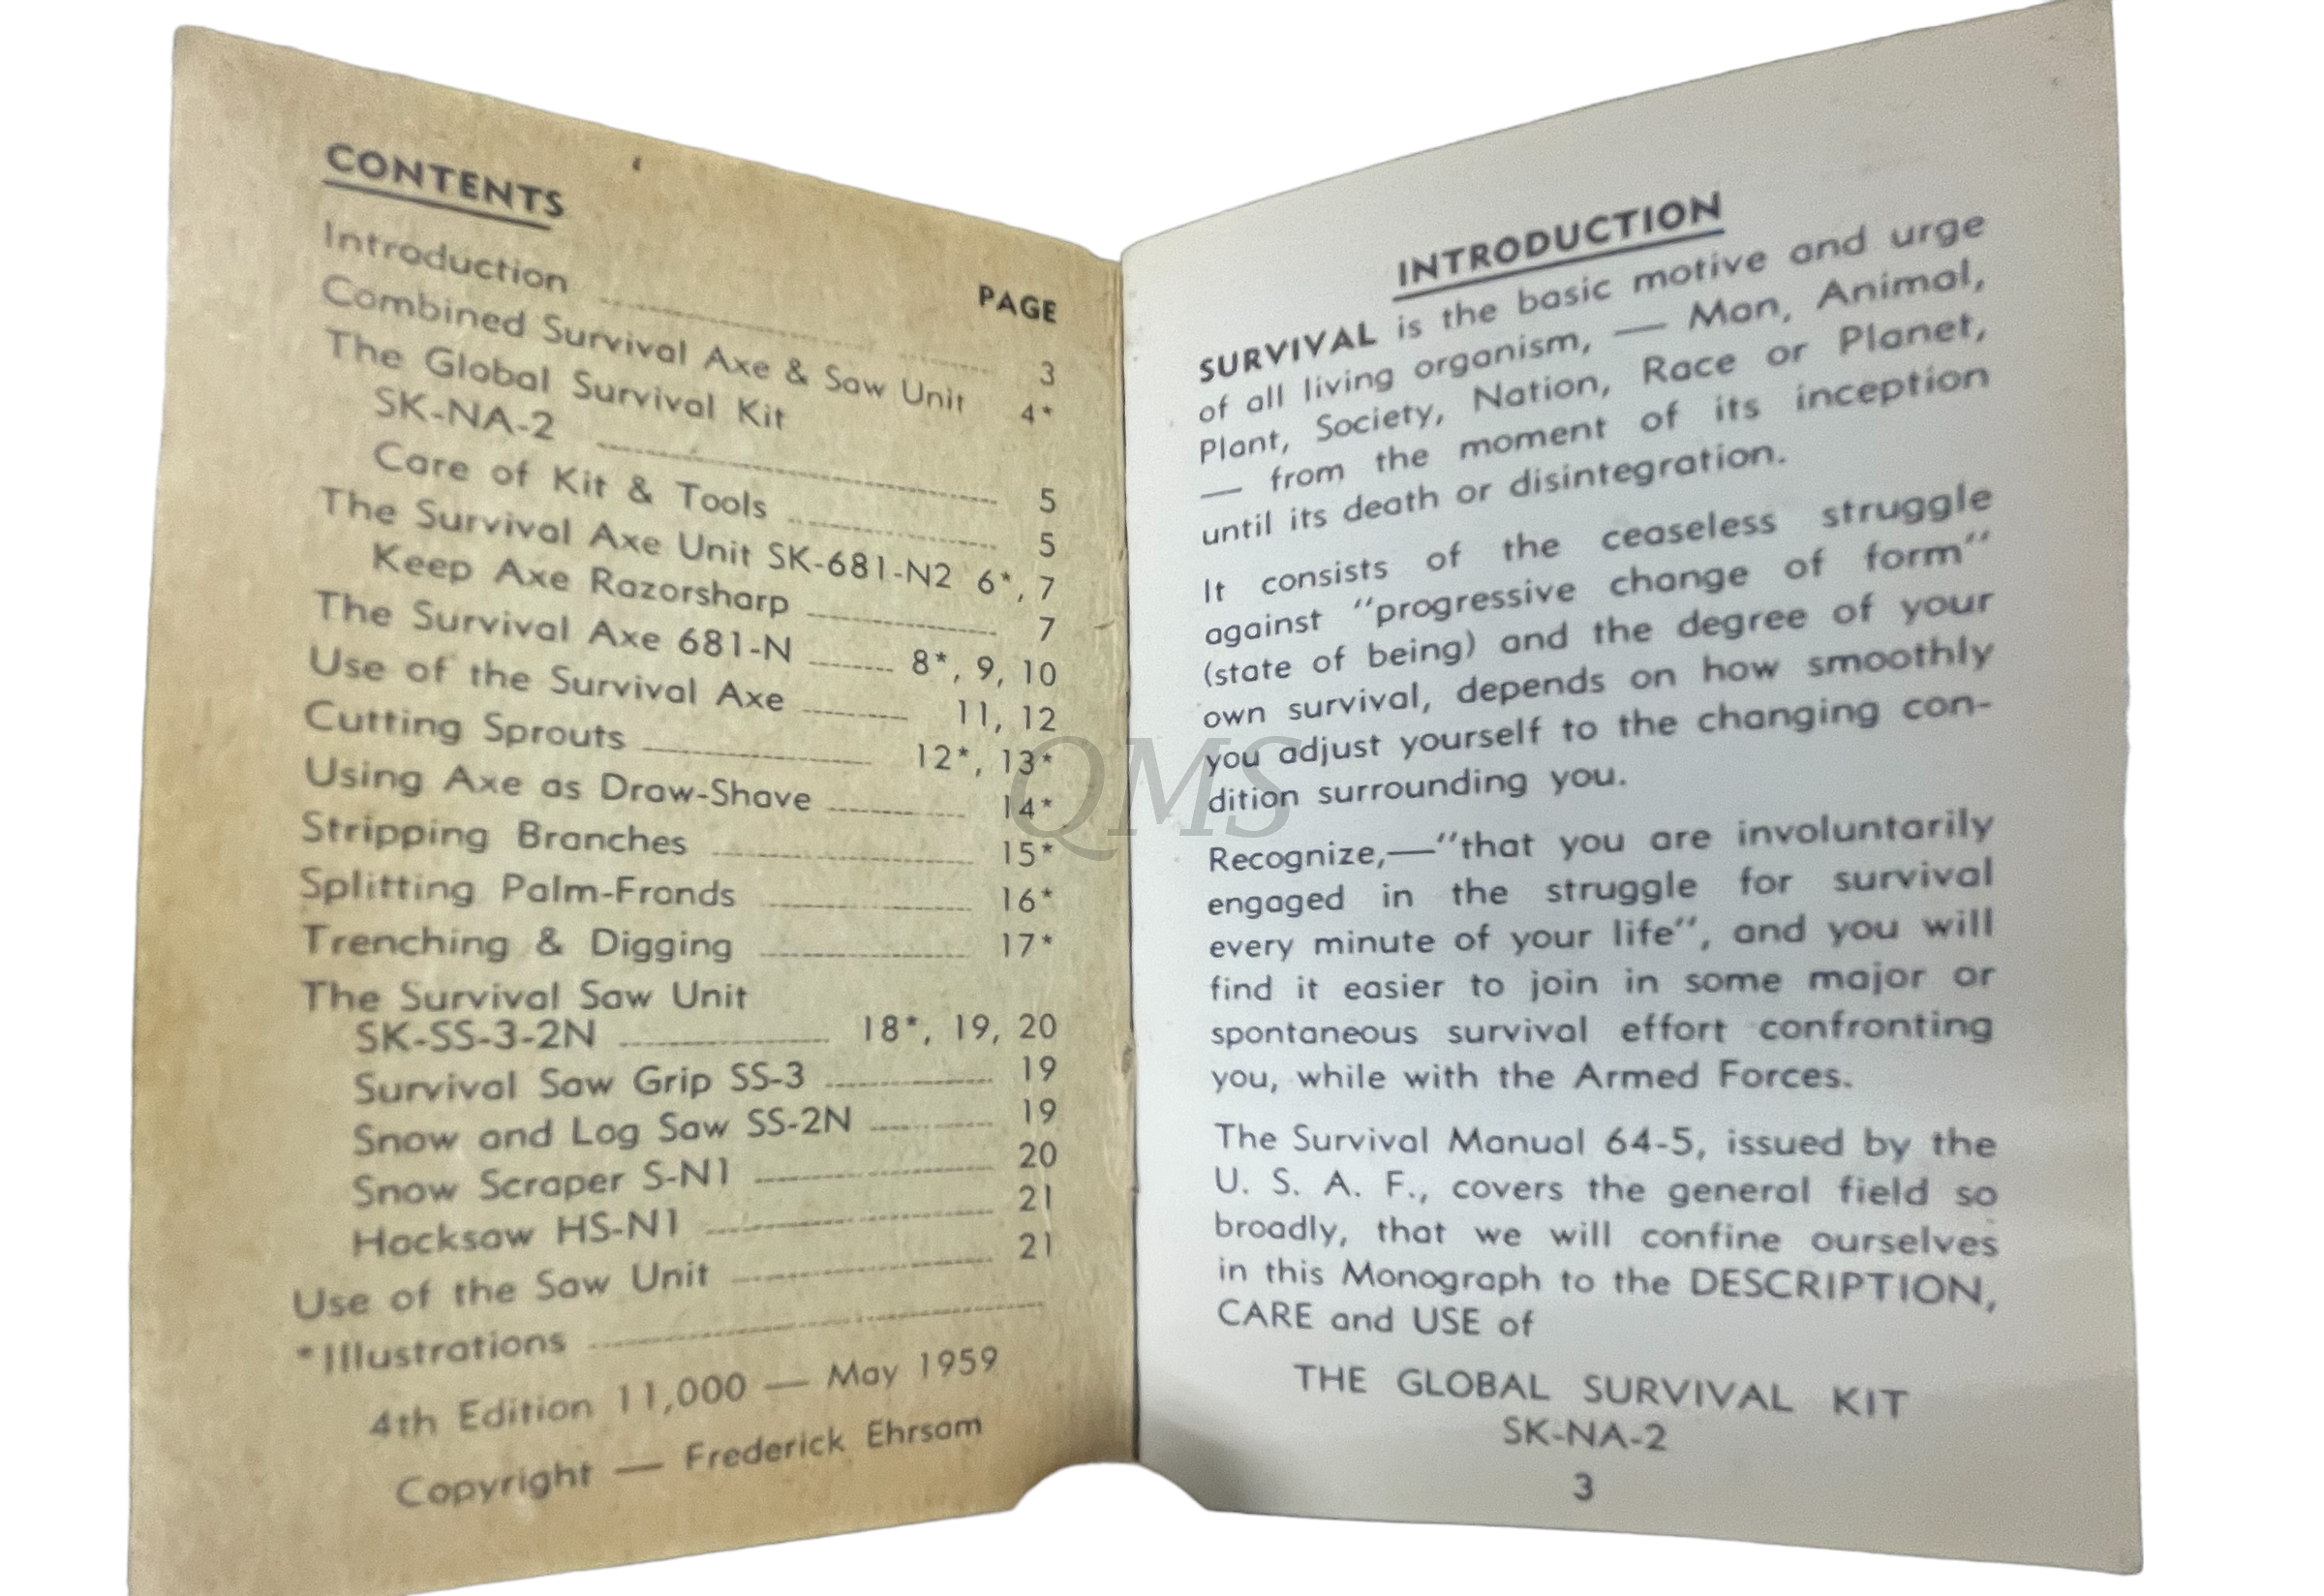 CONTENTS
PAGE
Introduction 3
Combined Survival Axe & Saw Unit 4*
The Global Survival Kit
SK-NA-2 5
Care of Kit & Tools 5
The Survival Axe Unit SK-681-N2 6*, 7
Keep Axe Razorsharp 7
The Survival Axe 681-N 8*, 9, 10
Use of the Survival Axe 11, 12
Cutting Sprouts 12*, 13*
Using Axe as Draw-Shave 14*
Stripping Branches 15*
Splitting Palm-Fronds 16*
Trenching & Digging 17*
The Survival Saw Unit
SK-SS-3-2N 18*, 19, 20
Survival Saw Grip SS-3 19
Snow and Log Saw SS-2N 19
Snow Scraper S-N1 20
Hacksaw HS-N1 21
Use of the Saw Unit 21
*Illustrations
4th Edition 11,000 — May 1959
Copyright — Frederick Ehrsam
INTRODUCTION
SURVIVAL is the basic motive and urge
of all living organism, — Man, Animal,
Plant, Society, Nation, Race or Planet,
— from the moment of its inception
until its death or disintegration.
It consists of the ceaseless struggle
against "progressive change of form"
(state of being) and the degree of your
own survival, depends on how smoothly
you adjust yourself to the changing con-
dition surrounding you.
Recognize,—"that you are involuntarily
engaged in the struggle for survival
every minute of your life", and you will
find it easier to join in some major or
spontaneous survival effort confronting
you, while with the Armed Forces.
The Survival Manual 64-5, issued by the
U. S. A. F., covers the general field so
broadly, that we will confine ourselves
in this Monograph to the DESCRIPTION,
CARE and USE of
THE GLOBAL SURVIVAL KIT
SK-NA-2
3
QMS